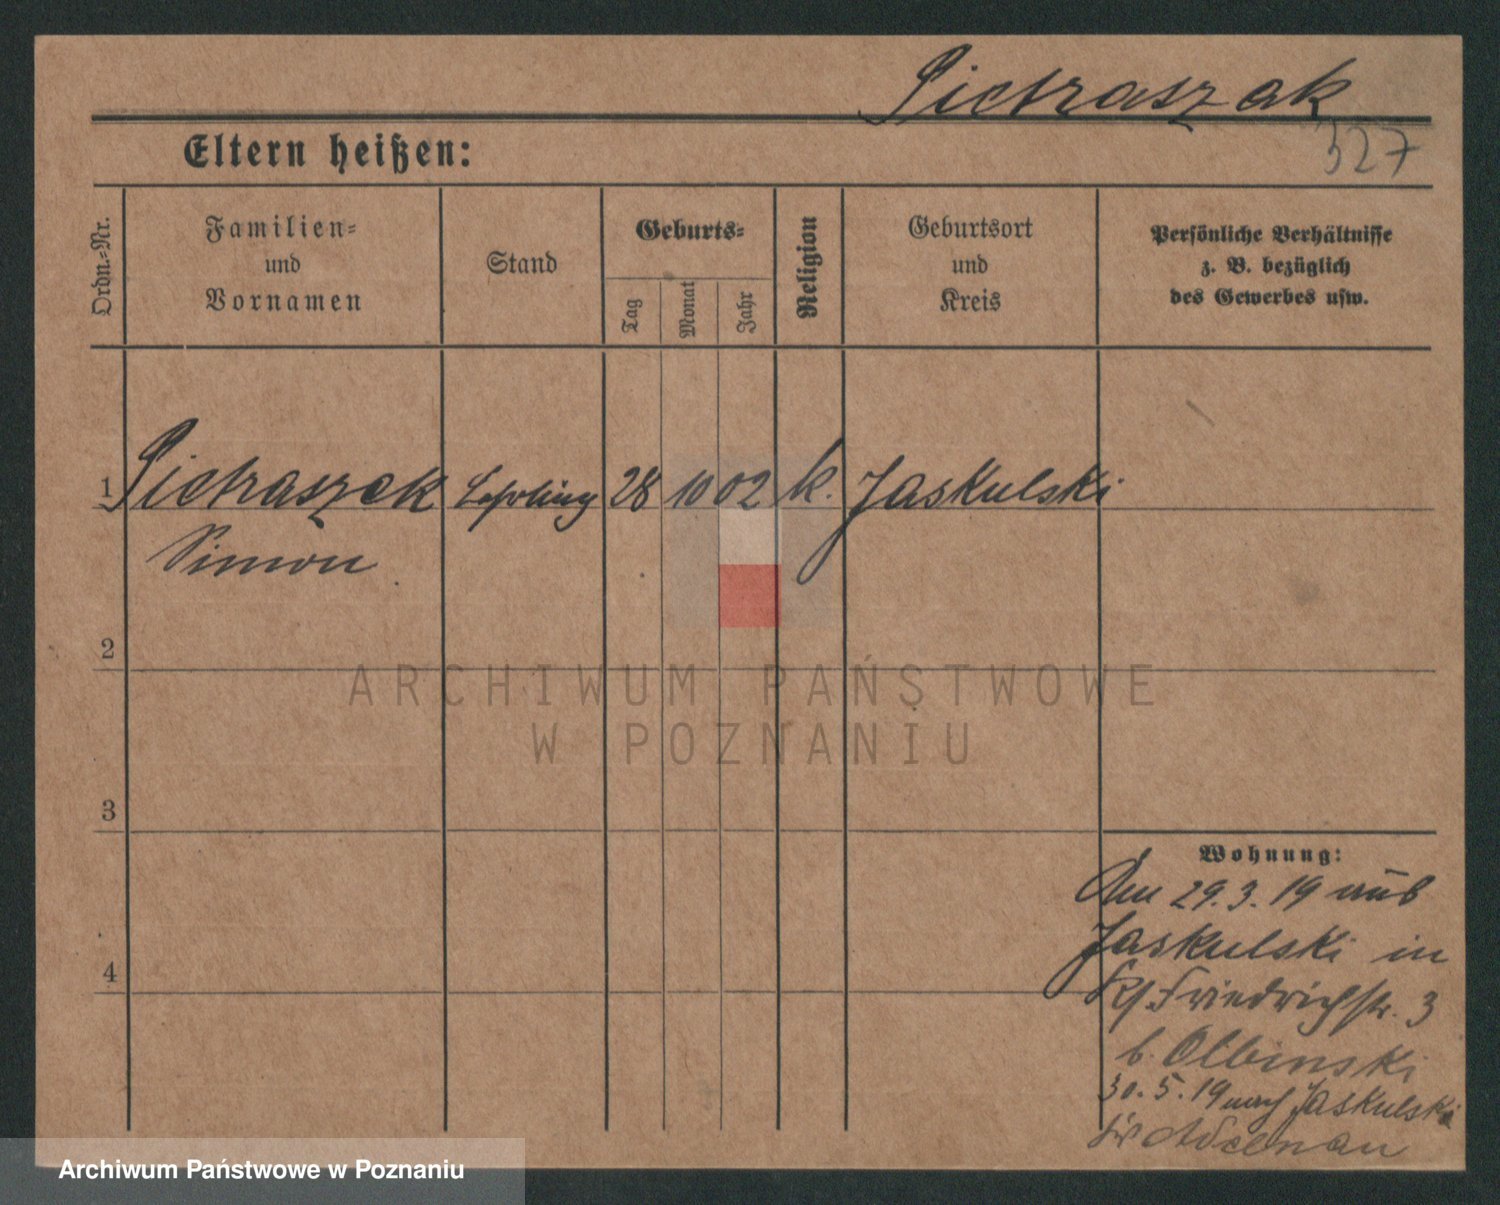 Pietraszak
327
Eltern heißen:
Ordn.-Nr.
Familien-
und
Vornamen
Stand
Geburts-
Tag
Monat
Jahr
Religion
Geburtsort
und
Kreis
Persönliche Verhältnisse
z. B. bezüglich
des Gewerbes usw.
1 Pietraszak Lehrling 28 10 02 k. Jaskulski
Simon
2
ARCHIWUM PAŃSTWOWE
W POZNANIU
3
Wohnung:
Am 29.3.19 aus
Jaskulski in
4
Friedrichstr. 3
b. Olbinski
30.5.19 nach Jaskulski
Kr Adelnau
Archiwum Państwowe w Poznaniu